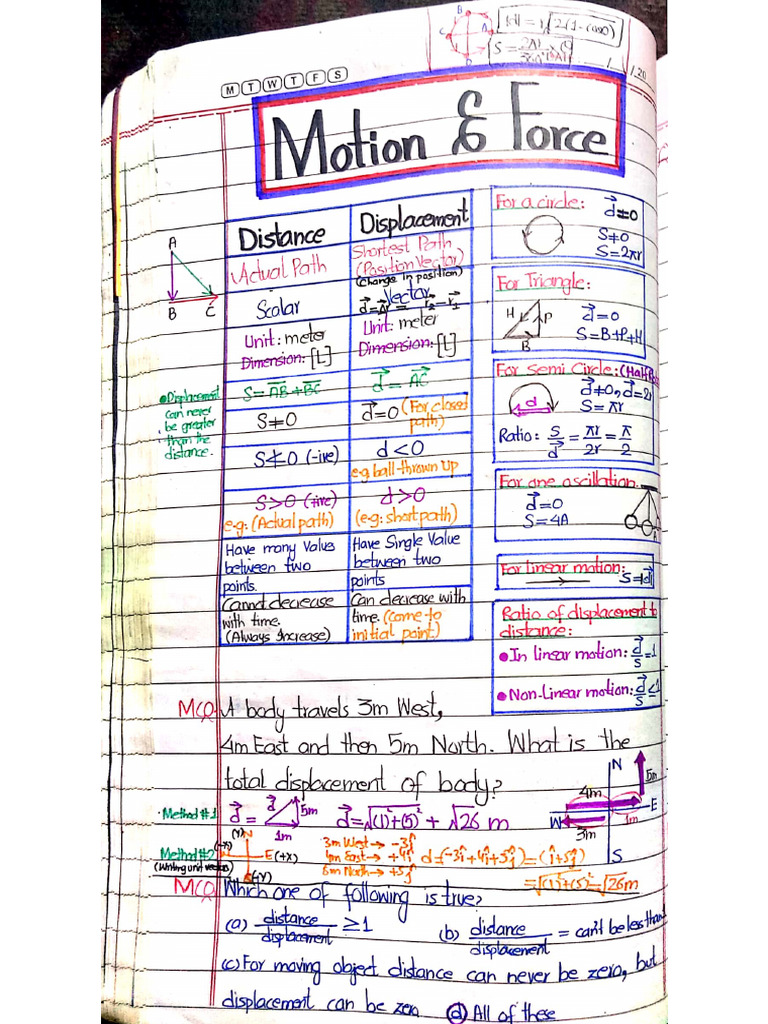 M T W T F S
Motion & Force
Distance
Displacement
Actual Path
Shortest Path
(Position Vector)
(change in position)
Scalar
Vector
d⃗ = Δr⃗ = r⃗₂ - r⃗₁
Unit: meter
Dimension: [L]
Unit: meter
Dimension: [L]
S = A̅B̅ + B̅C̅
d⃗ = A⃗C
S ≠ 0
d⃗ = 0 (For closed
path)
S ≮ 0 (-ive)
d < 0
e.g. ball thrown Up
S > 0 (+ive)
e.g: (Actual path)
d > 0
(e.g: short path)
Have many Values
between two
points.
Have Single Value
between two
points
Cannot decrease
with time.
(Always Increase)
Can decrease with
time. (Come to
initial point)
A
B C
• Displacement
can never
be greater
than the
distance.
For a circle:
d⃗ = 0
S ≠ 0
S = 2πr
For Triangle:
H P
B
d⃗ = 0
S = B + P + H
For Semi Circle:
d
d⃗ ≠ 0, d⃗ = 2r
S = πr
Ratio: S/d⃗ = πr/2r = π/2
For one oscillation
d⃗ = 0
S = 4A
For linear motion:
S = |d⃗|
Ratio of displacement to
distance:
• In linear motion: d⃗/S = 1
• Non-Linear motion: d⃗/S < 1
MCQ A body travels 3m West,
4m East and then 5m North. What is the
total displacement of body?
N
5m
4m
E
W
3m
1m
S
Method #1 d⃗ = d⃗ 5m d⃗ = √(1)²+(5)² + √26 m
1m
Method #2
(Writing unit vectors)
(Y) N
(-x) W
E (+x)
(-Y)
3m West → -3î
4m East → +4î
5m North → +5ĵ
d = (-3î + 4î + 5ĵ) = (î + 5ĵ)
= √(1)²+(5)² = √26 m
MCQ Which one of following is true?
(a) distance/displacement ≥ 1
(b) distance/displacement = can't be less than
(c) For moving object distance can never be zero, but
displacement can be zero (d) All of these